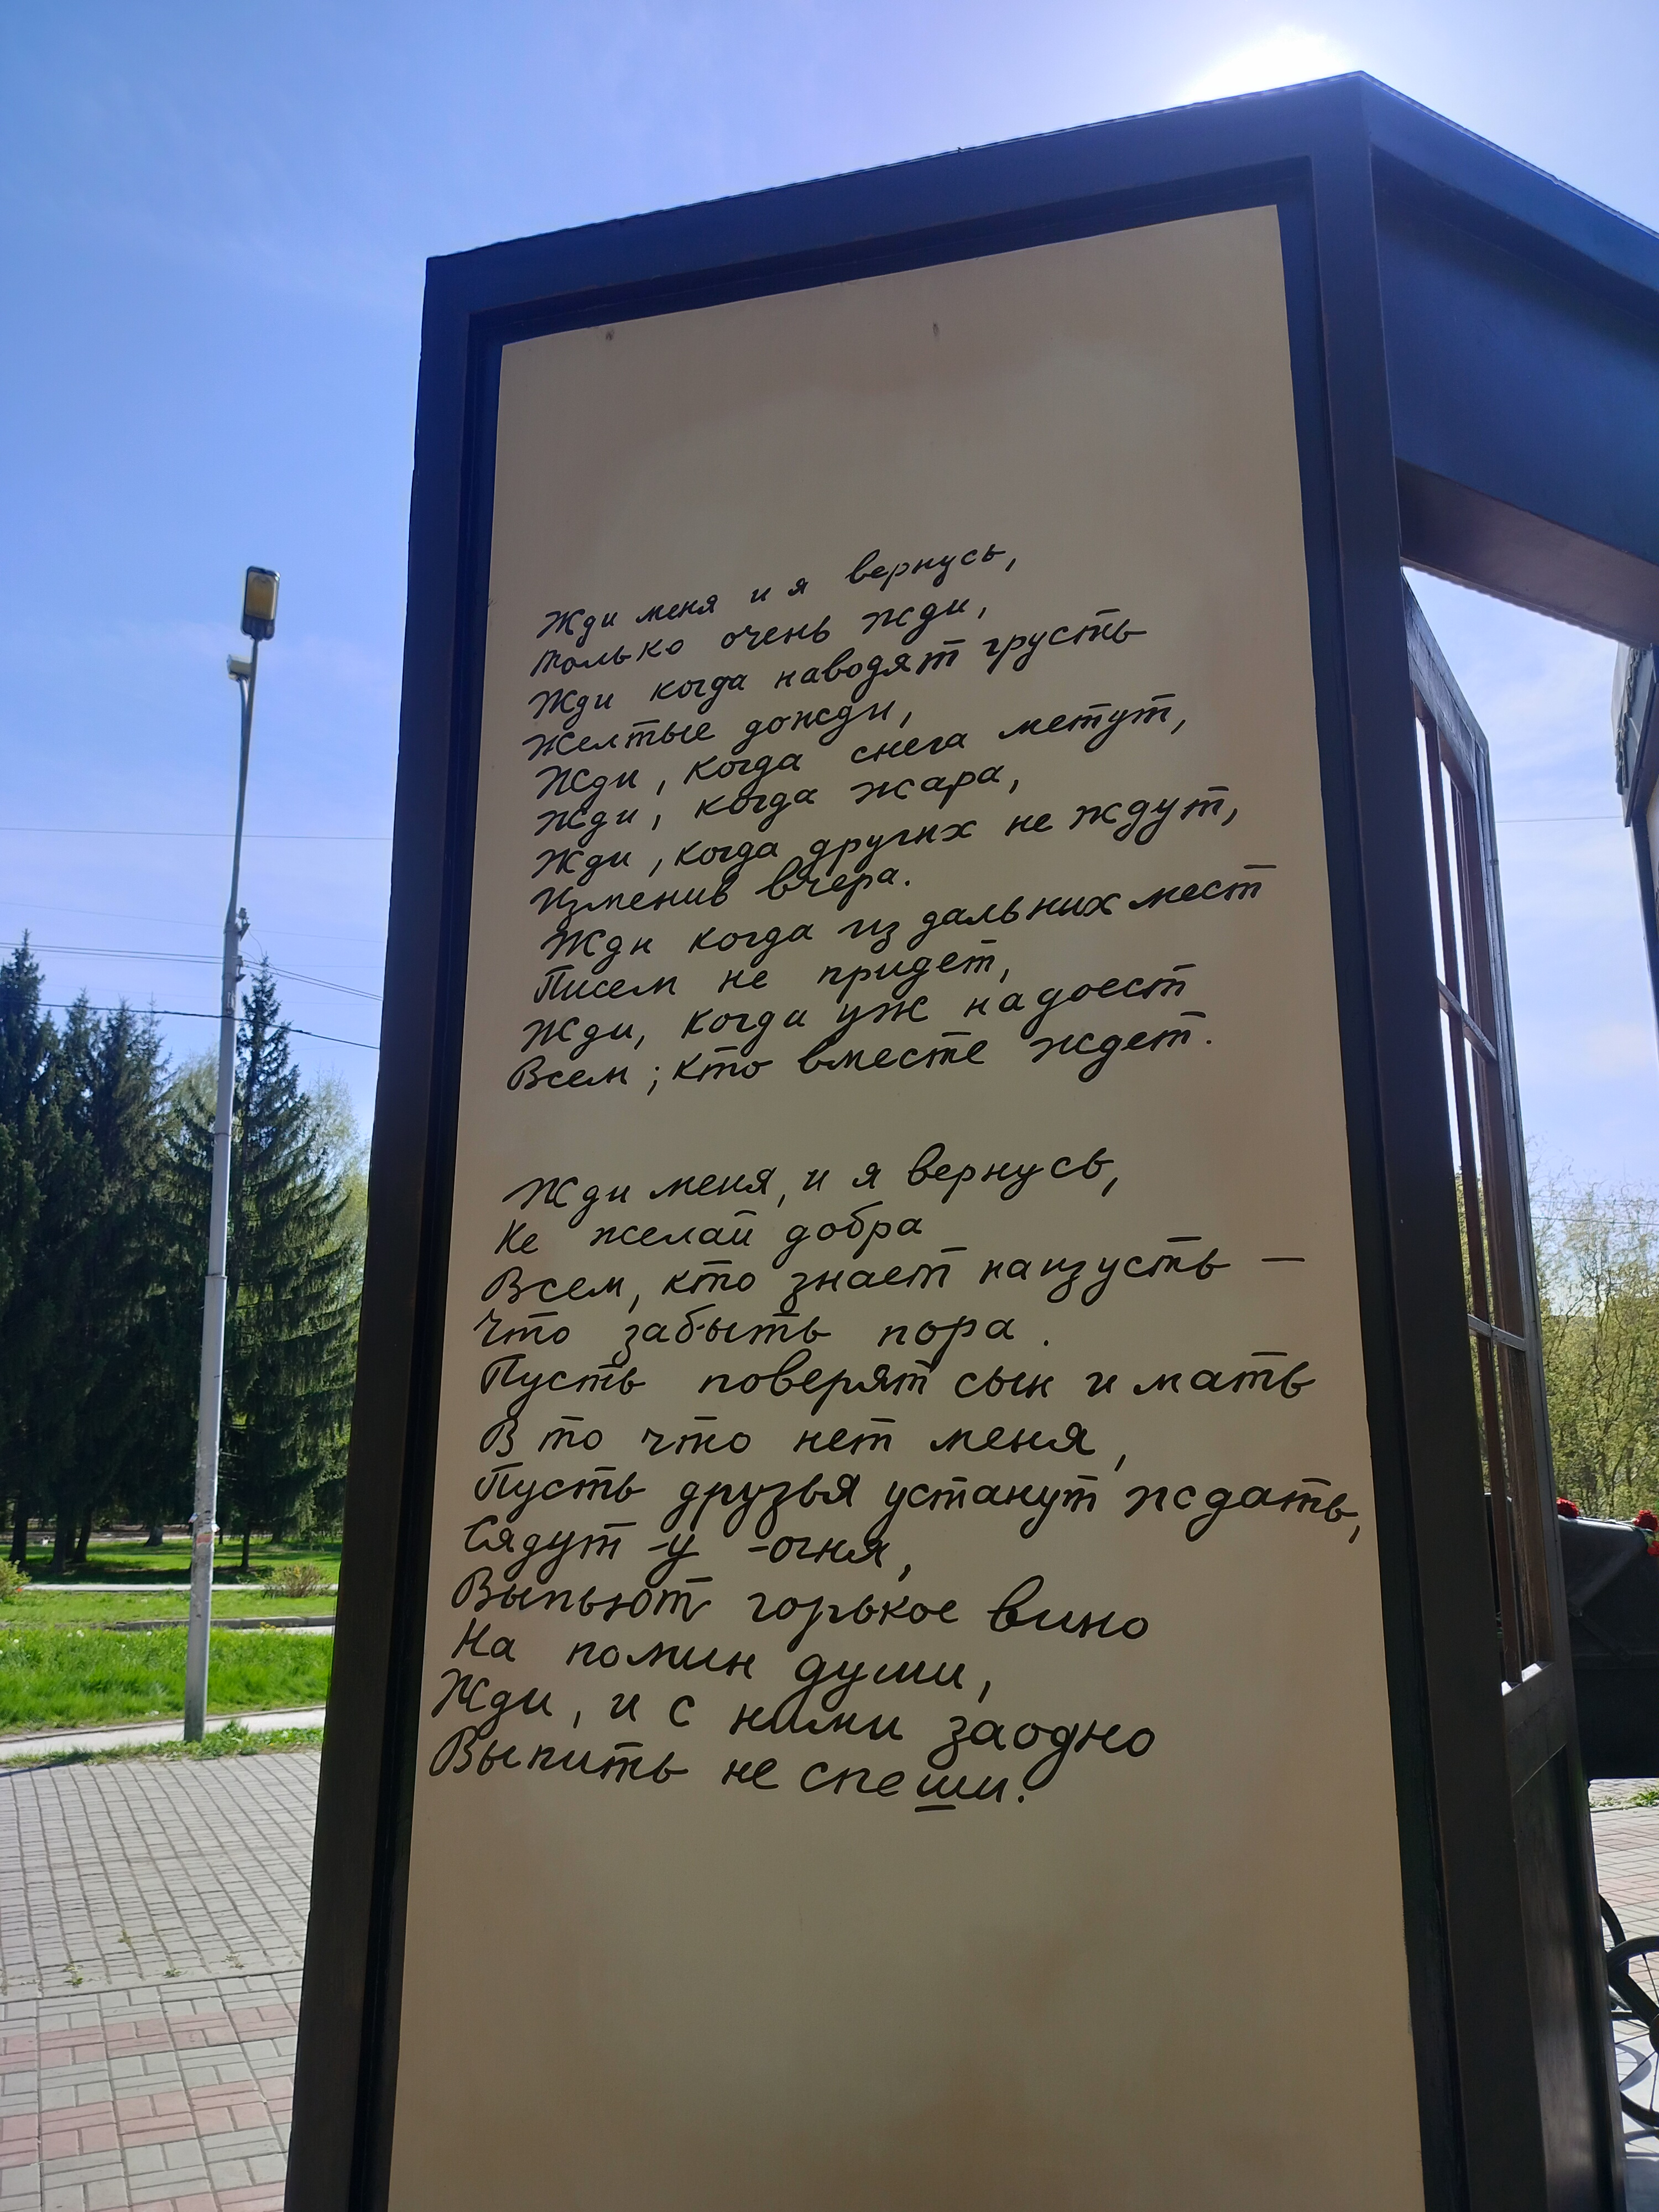 Жди меня и я вернусь,
только очень жди,
Жди когда наводят грусть
Желтые дожди,
Жди, когда снега метут,
Жди, когда жара,
Жди, когда других не ждут,
Изменив вчера.
Жди когда из дальних мест
Писем не придет,
Жди, когда уж надоест
Всем; кто вместе ждет.
Жди меня, и я вернусь,
Не желай добра
Всем, кто знает наизусть —
Что забыть пора.
Пусть поверят сын и мать
В то что нет меня,
Пусть друзья устанут ждать,
Сядут у огня,
Выпьют горькое вино
На помин души,
Жди, и с ними заодно
Выпить не спеши.